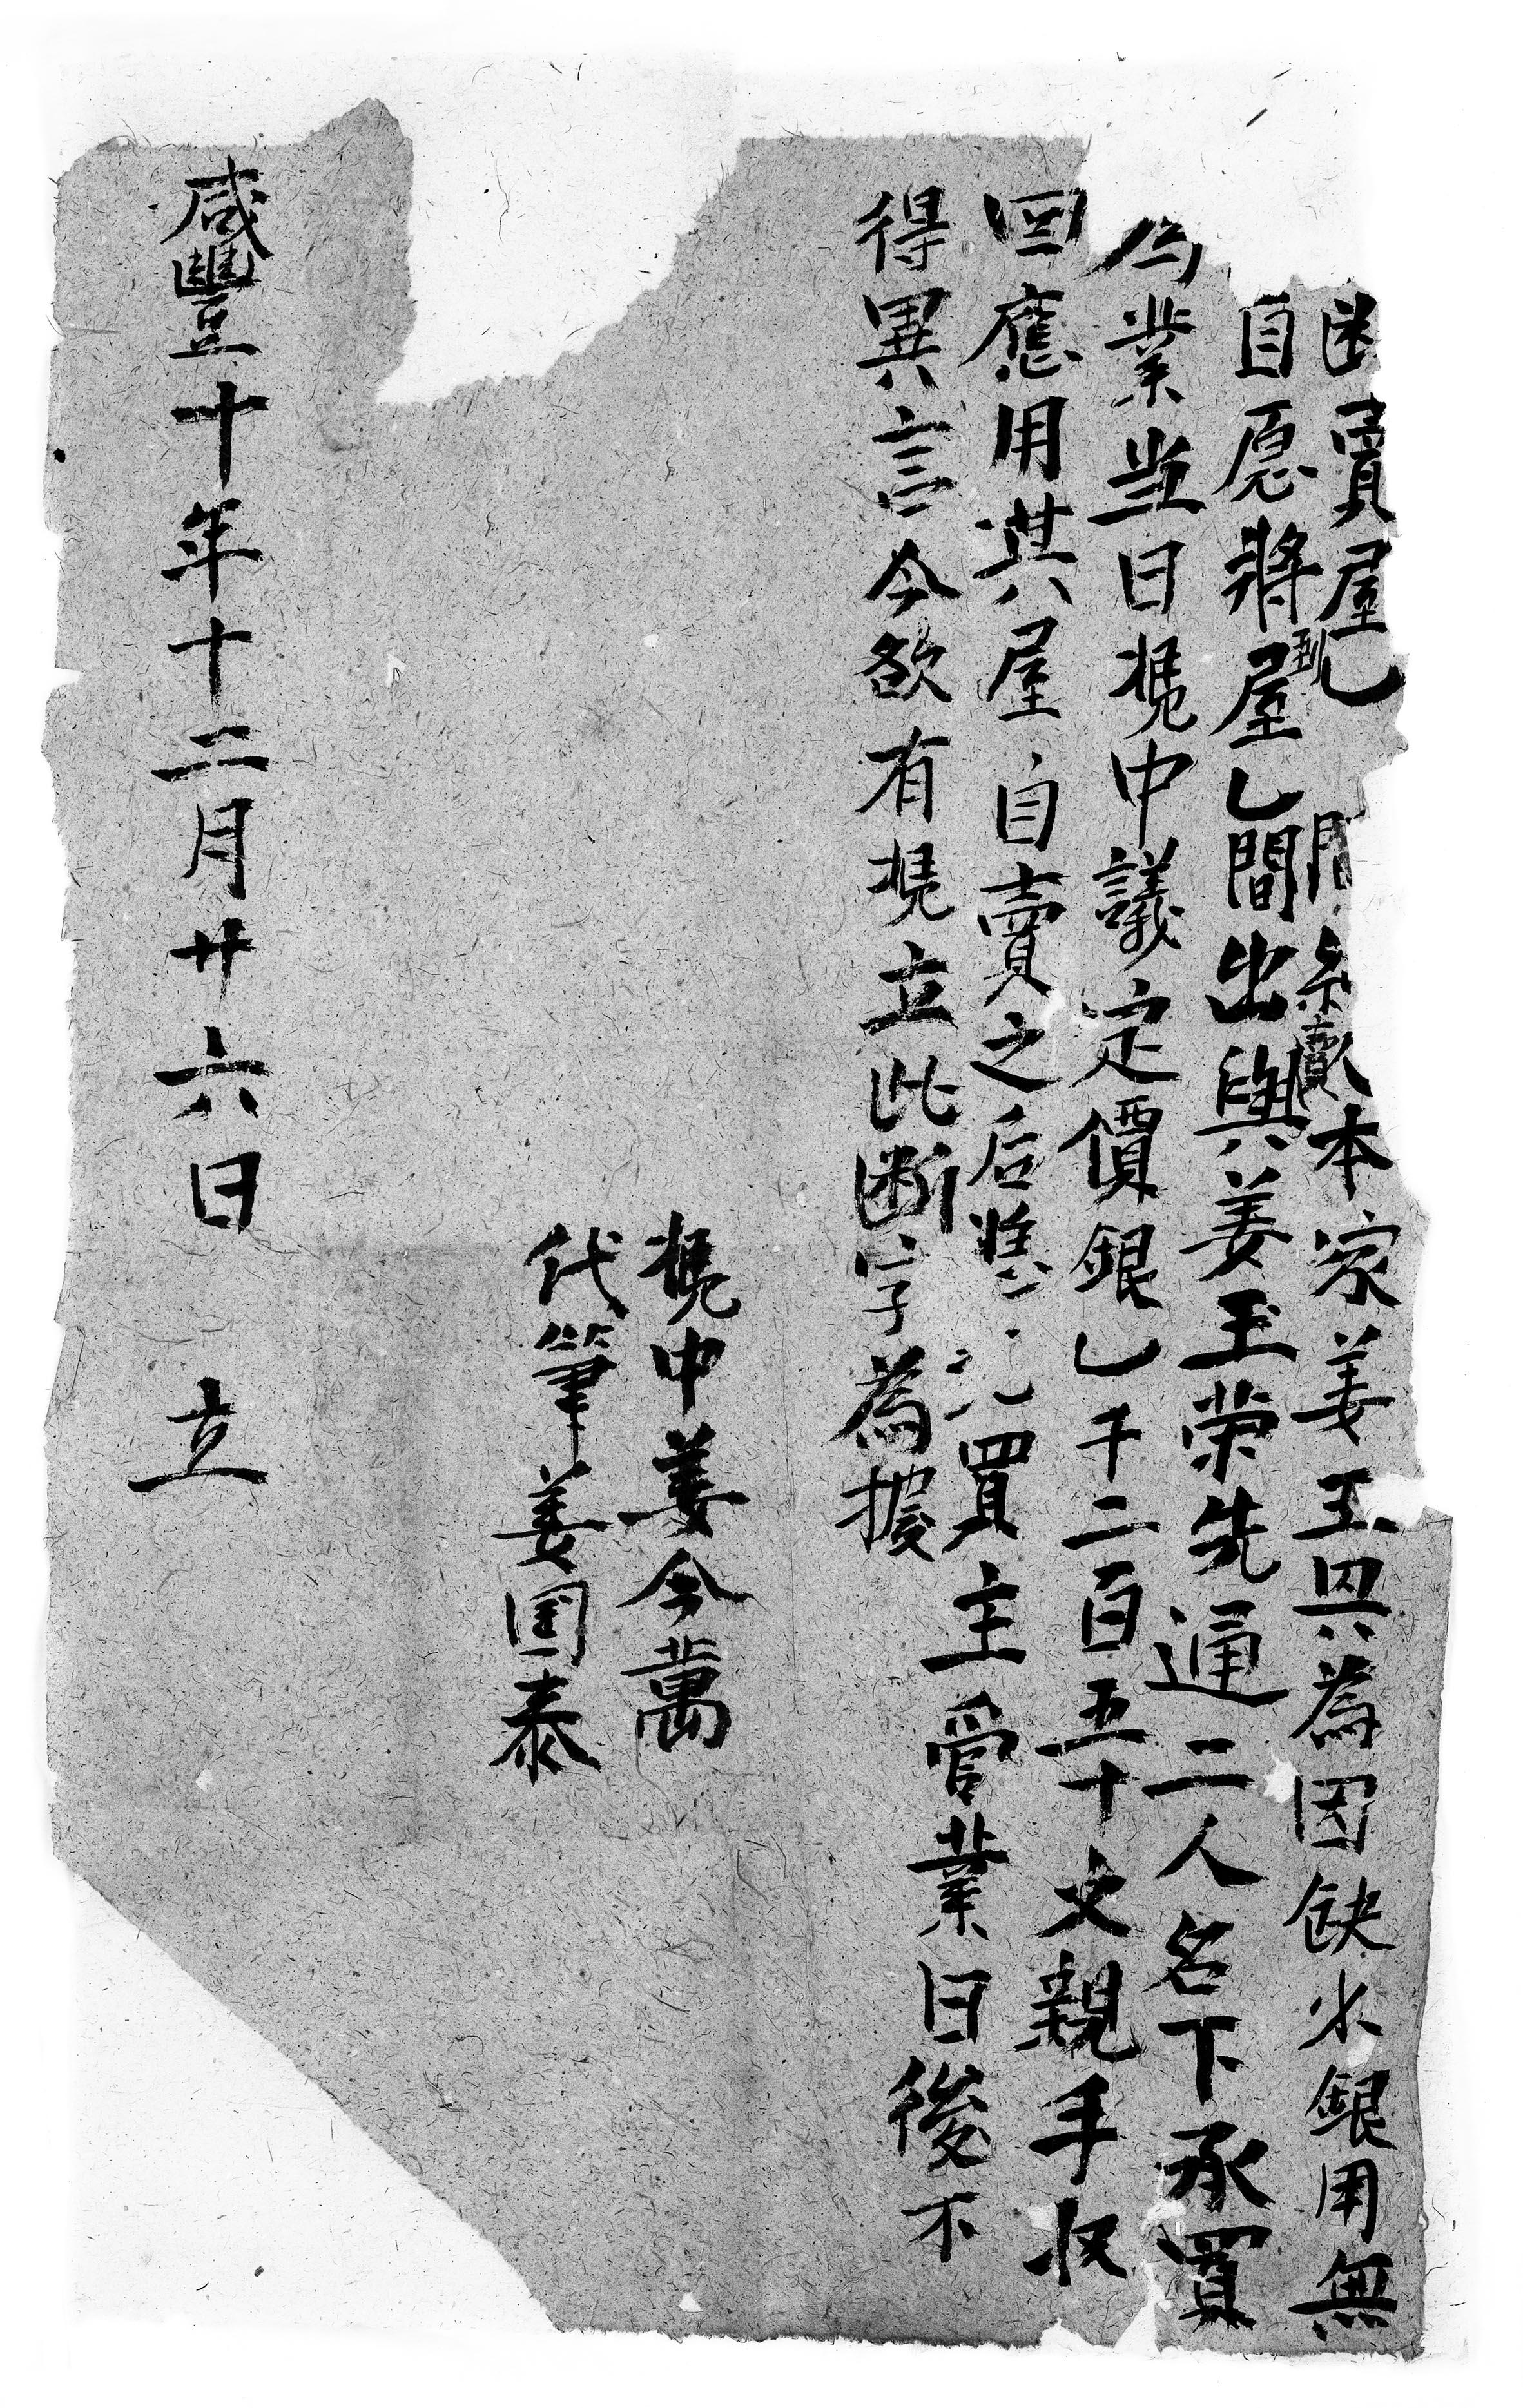 断賣屋乚間約賣本家姜玉興為因缺少銀用無
自愿將屋乚間出與姜玉荣先通二人名下承買
為業当日憑中議定價銀乚千二百五十文親手収
囬應用其屋自賣之后憑買主管業日後不
得異言今欲有憑立此断字為據
憑中姜今萬
代筆姜国泰
咸豐十年十二月廿六日 立